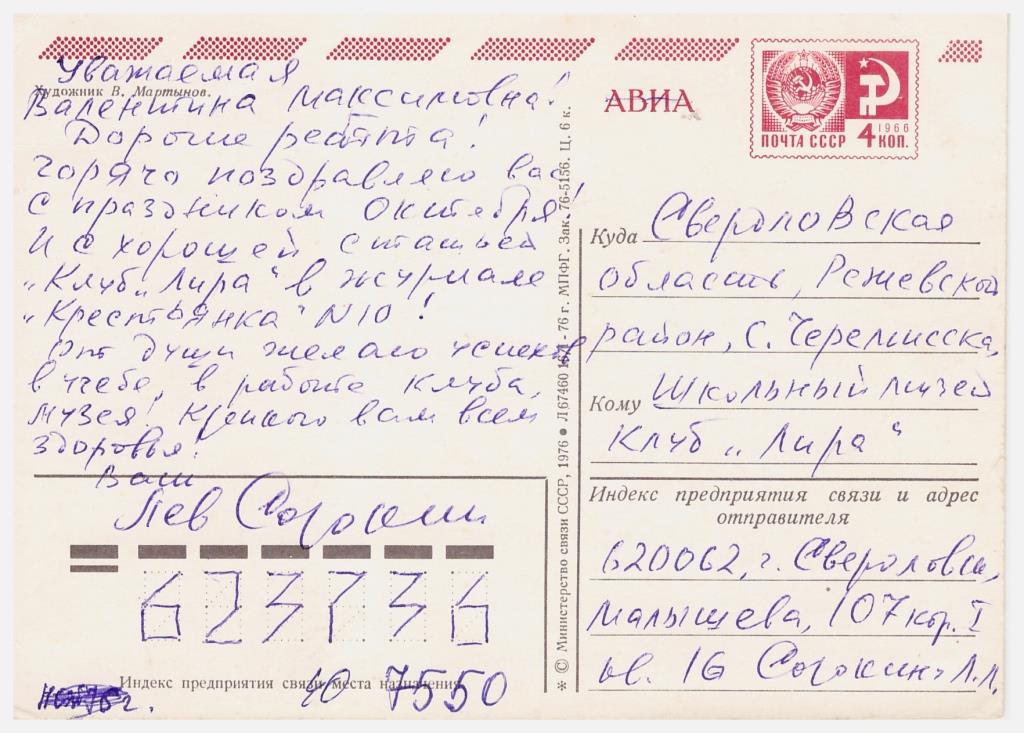 Уважаемая
Художник В. Мартынов.
Валентина Максимовна!
Дорогие ребята!
Горячо поздравляю вас
с праздником Октября!
И с хорошей статьей
„Клуб „Лира“ в журнале
„Крестьянка“ N10!
От души желаю успехов
в учебе, в работе клуба,
музея! Крепкого вам всем
здоровья!
Ваш
Лев Сорокин
623736
Индекс предприятия связи места назначения
г.
7550
* © Министерство связи СССР, 1976 ● Л 67460 - 76 г. МПФГ. Зак. 76-5156. Ц. 6 к.
АВИА
ПОЧТА СССР
1966
4 КОП.
Куда Свердловская
область, Режевской
район, с. Черемисска,
Кому Школьный музей
Клуб „Лира“
Индекс предприятия связи и адрес
отправителя
620062, г. Свердловск,
Малышева, 107 кор. I
кв. 16 Сорокин Л.Л.